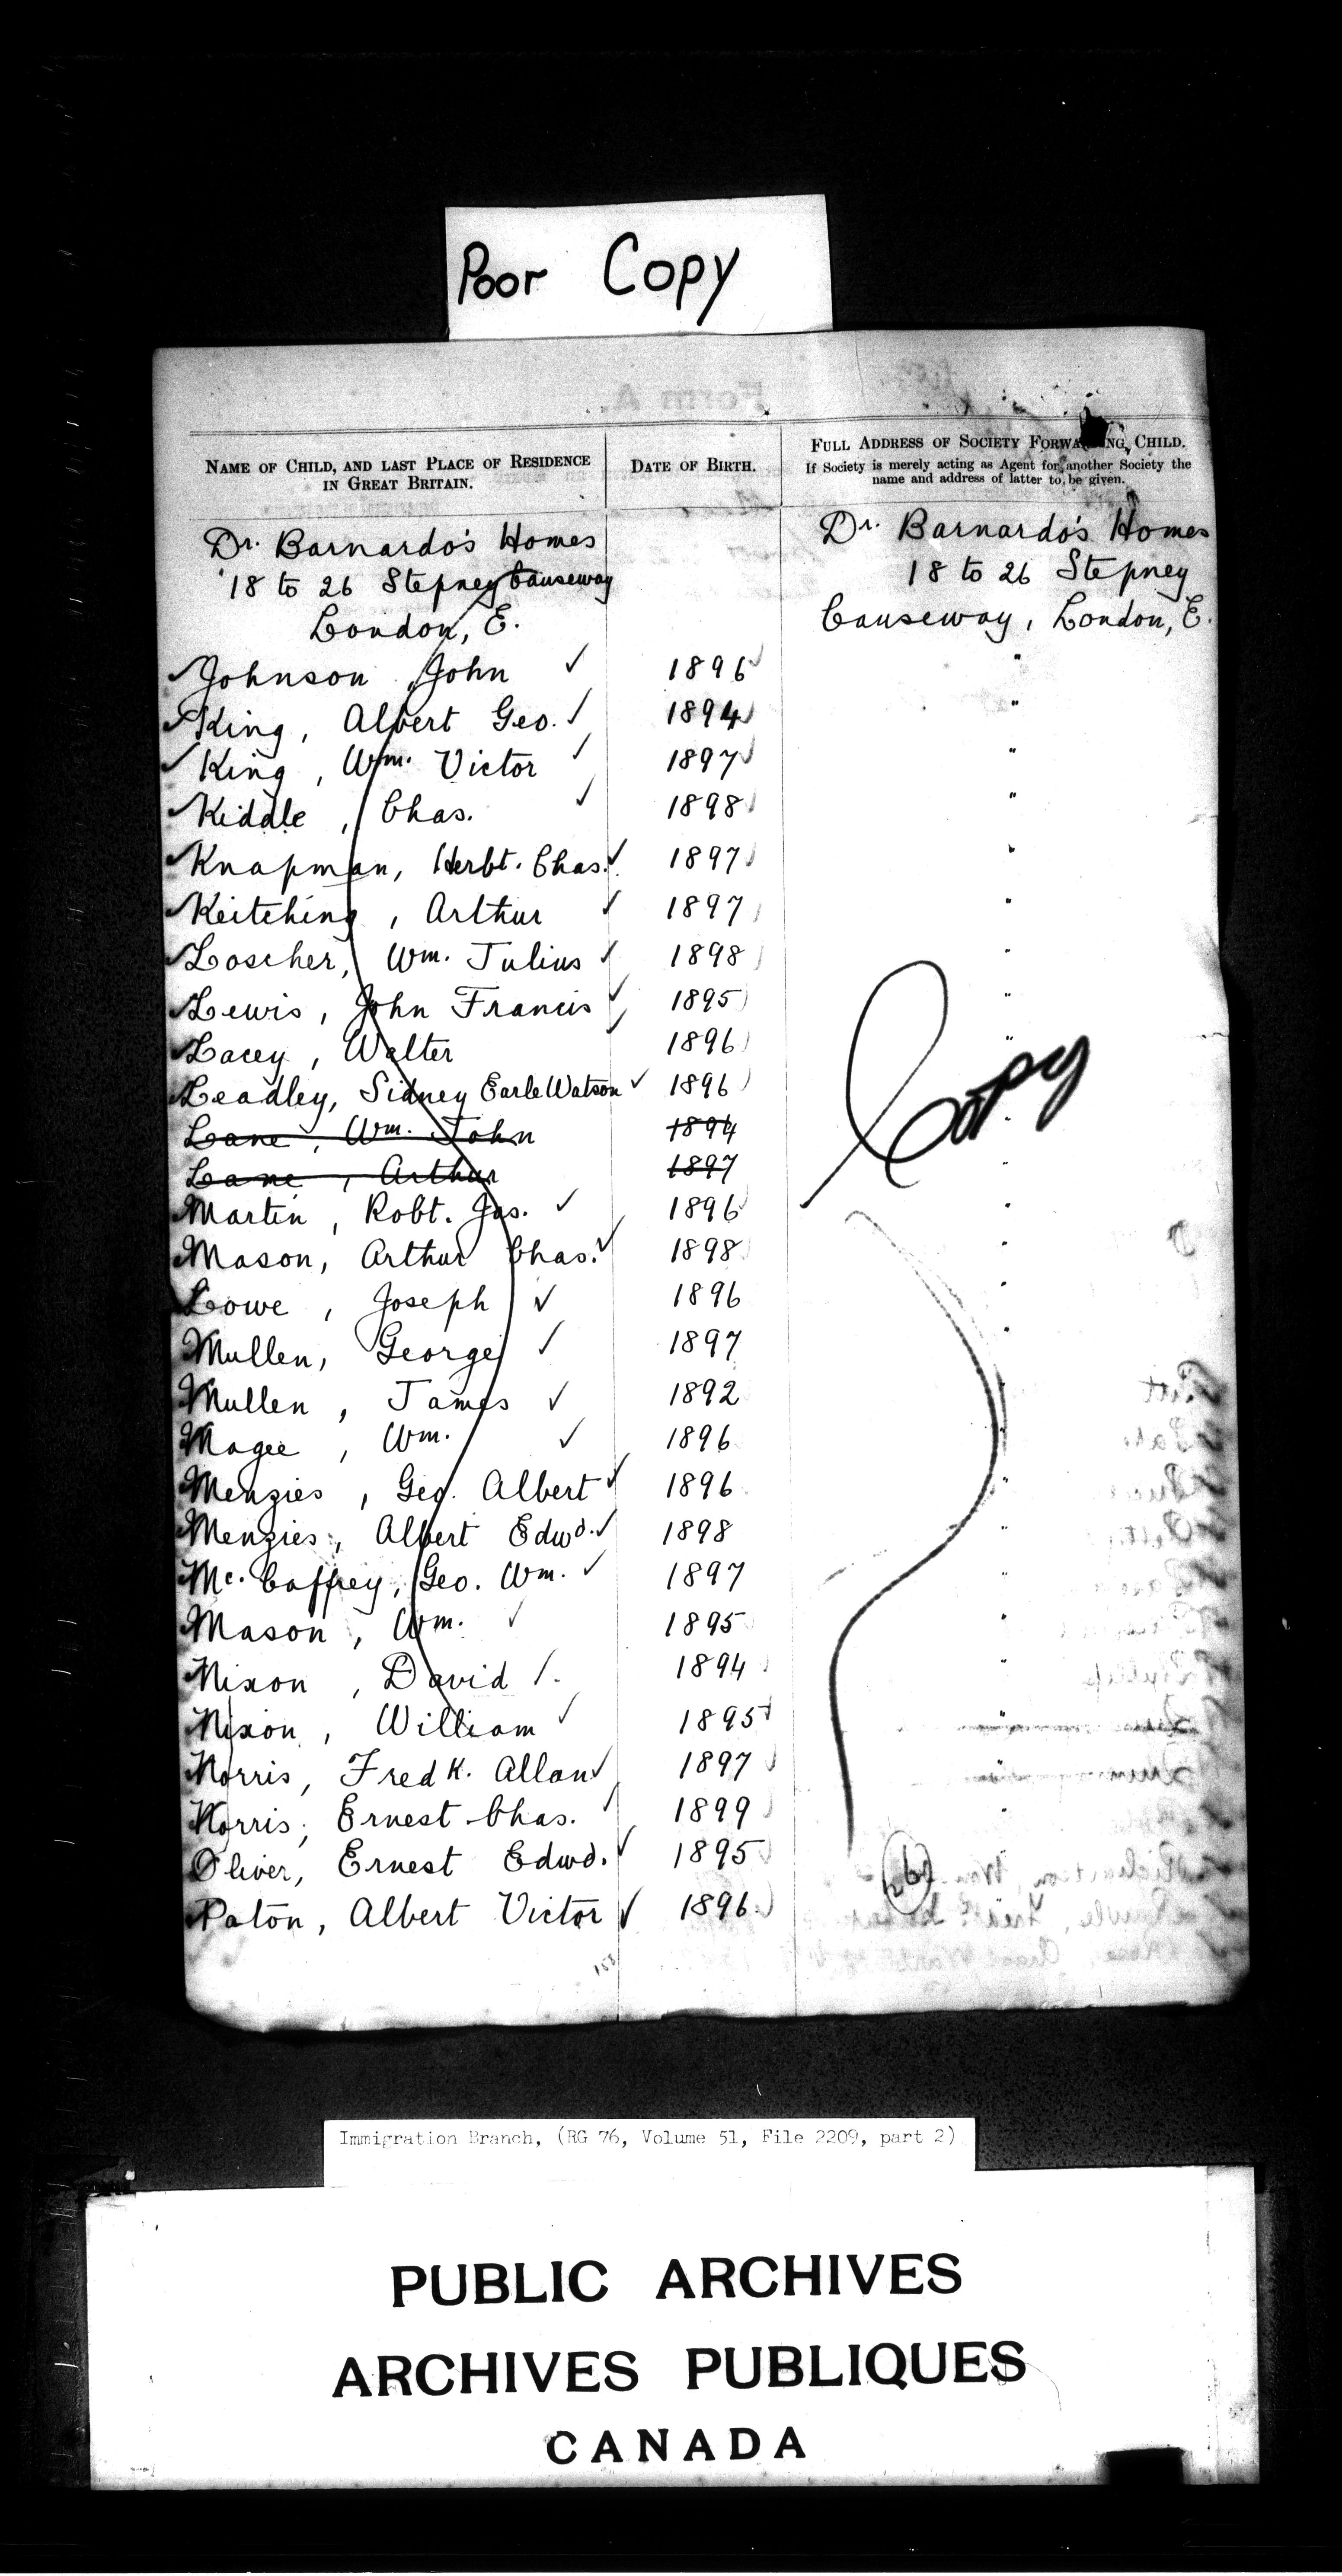 Poor Copy
NAME OF CHILD, AND LAST PLACE OF RESIDENCE
IN GREAT BRITAIN.
DATE OF BIRTH.
FULL ADDRESS OF SOCIETY FORWARDING CHILD.
If Society is merely acting as Agent for another Society the
name and address of latter to be given.
Dr. Barnardo's Homes
18 to 26 Stepney Causeway
London, E.
Dr. Barnardo's Homes
18 to 26 Stepney
Causeway, London, E.
Johnson, John ✓ 1896 "
King, Albert Geo. ✓ 1894 "
King, Wm. Victor ✓ 1897 "
Kiddle, Chas. ✓ 1898 "
Knapman, Herbt. Chas. ✓ 1897 "
Keitching, Arthur ✓ 1897 "
Loscher, Wm. Julius ✓ 1898 "
Lewis, John Francis ✓ 1895 "
Lacey, Walter ✓ 1896 "
Leadley, Sidney Earle Watson ✓ 1896 "
Copy
Lane, Wm. John 1894 "
Lane, Arthur 1897 "
Martin, Robt. Jas. ✓ 1896 "
Mason, Arthur Chas. ✓ 1898 "
Lowe, Joseph ✓ 1896 "
Mullen, George ✓ 1897 "
Mullen, James ✓ 1892
Magee, Wm. ✓ 1896 "
Menzies, Geo. Albert ✓ 1896 "
Menzies, Albert Edwd. ✓ 1898 "
Mc. Caffrey, Geo. Wm. ✓ 1897 "
Mason, Wm. ✓ 1895 "
Nixon, David ✓ 1894 "
Nixon, William ✓ 1895 "
Norris, Fredk. Allan ✓ 1897 "
Norris, Ernest Chas. ✓ 1899 "
Oliver, Ernest Edwd. ✓ 1895 "
Paton, Albert Victor ✓ 1896
Immigration Branch, (RG 76, Volume 51, File 2209, part 2)
PUBLIC ARCHIVES
ARCHIVES PUBLIQUES
CANADA